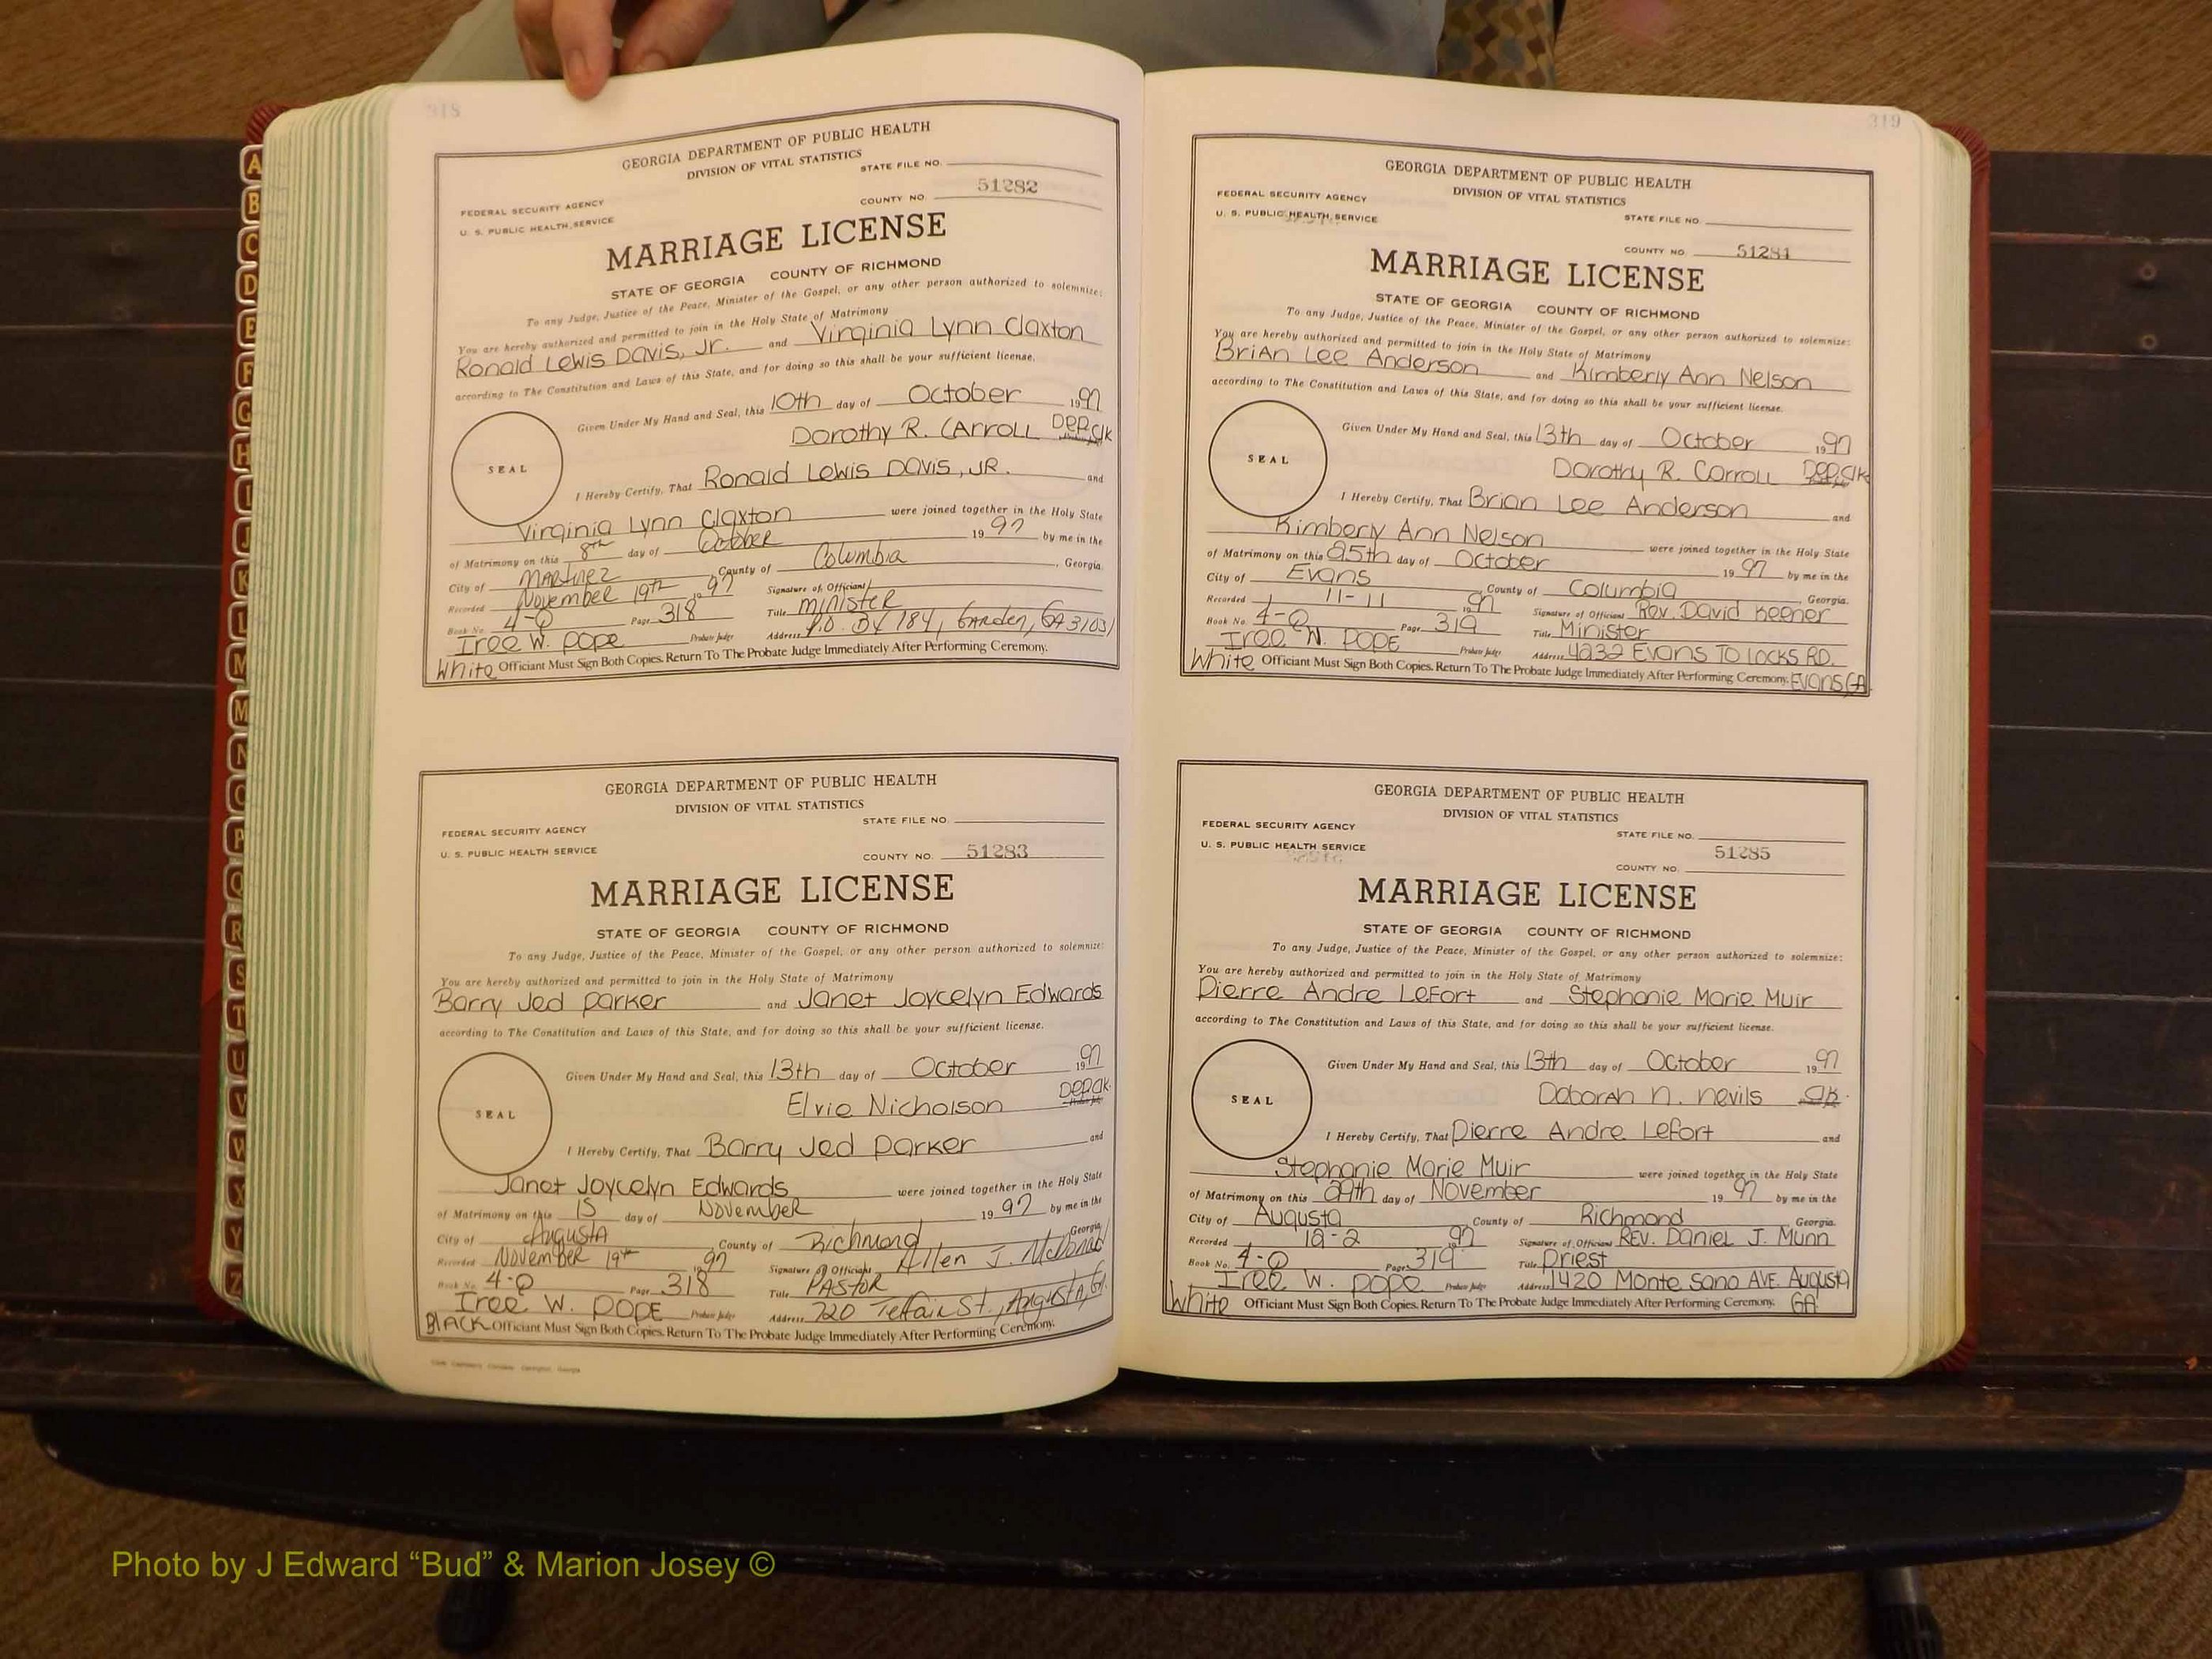 318
GEORGIA DEPARTMENT OF PUBLIC HEALTH
DIVISION OF VITAL STATISTICS
STATE FILE NO.
FEDERAL SECURITY AGENCY
COUNTY NO. 51282
U. S. PUBLIC HEALTH SERVICE
MARRIAGE LICENSE
STATE OF GEORGIA COUNTY OF RICHMOND
To any Judge, Justice of the Peace, Minister of the Gospel, or any other person authorized to solemnize:
You are hereby authorized and permitted to join in the Holy State of Matrimony
Ronald Lewis Davis, Jr. and Virginia Lynn Claxton
according to The Constitution and Laws of this State, and for doing so this shall be your sufficient license.
Given Under My Hand and Seal, this 10th day of October 1997
Dorothy R. Carroll Dep Clk
SEAL
I Hereby Certify, That Ronald Lewis Davis, JR. and
Virginia Lynn Claxton were joined together in the Holy State
of Matrimony on this 8th day of October 1997 by me in the
City of Martinez County of Columbia, Georgia.
Recorded November 19th 1997 Signature of Official
Book No. 4-Q Page 318 Title minister
Iree W. Pope Probate Judge Address P.O. Bx 784, Garden, GA 31031
White Officiant Must Sign Both Copies. Return To The Probate Judge Immediately After Performing Ceremony.
GEORGIA DEPARTMENT OF PUBLIC HEALTH
DIVISION OF VITAL STATISTICS
STATE FILE NO.
FEDERAL SECURITY AGENCY
U. S. PUBLIC HEALTH SERVICE
COUNTY NO. 51283
MARRIAGE LICENSE
STATE OF GEORGIA COUNTY OF RICHMOND
To any Judge, Justice of the Peace, Minister of the Gospel, or any other person authorized to solemnize:
You are hereby authorized and permitted to join in the Holy State of Matrimony
Barry Jed Parker and Janet Joycelyn Edwards
according to The Constitution and Laws of this State, and for doing so this shall be your sufficient license.
Given Under My Hand and Seal, this 13th day of October 1997
Elvie Nicholson Dep Clk.
SEAL
I Hereby Certify, That Barry Jed Parker and
Janet Joycelyn Edwards were joined together in the Holy State
of Matrimony on this 15 day of November 1997 by me in the
City of Augusta County of Richmond Georgia
Recorded November 19th 1997 Signature of Official Allen J. McDonald
Book No. 4-Q Page 318 Title Pastor
Iree W. Pope Probate Judge Address 720 Telfair St., Augusta, Ga.
Black Officiant Must Sign Both Copies. Return To The Probate Judge Immediately After Performing Ceremony.
319
GEORGIA DEPARTMENT OF PUBLIC HEALTH
DIVISION OF VITAL STATISTICS
FEDERAL SECURITY AGENCY
U. S. PUBLIC HEALTH SERVICE
STATE FILE NO.
COUNTY NO. 51284
MARRIAGE LICENSE
STATE OF GEORGIA COUNTY OF RICHMOND
To any Judge, Justice of the Peace, Minister of the Gospel, or any other person authorized to solemnize:
You are hereby authorized and permitted to join in the Holy State of Matrimony
Brian Lee Anderson and Kimberly Ann Nelson
according to The Constitution and Laws of this State, and for doing so this shall be your sufficient license.
Given Under My Hand and Seal, this 13th day of October 1997
Dorothy R. Carroll Dep Clk
SEAL
I Hereby Certify, That Brian Lee Anderson and
Kimberly Ann Nelson were joined together in the Holy State
of Matrimony on this 25th day of October 1997 by me in the
City of Evans County of Columbia Georgia.
Recorded 11-11 1997 Signature of Official Rev. David Keener
Book No. 4-Q Page 319 Title Minister
Iree W. Pope Probate Judge Address 4232 Evans To Locks RD.
White Officiant Must Sign Both Copies. Return To The Probate Judge Immediately After Performing Ceremony. Evans, GA
GEORGIA DEPARTMENT OF PUBLIC HEALTH
DIVISION OF VITAL STATISTICS
FEDERAL SECURITY AGENCY
STATE FILE NO.
U. S. PUBLIC HEALTH SERVICE
51285
COUNTY NO.
MARRIAGE LICENSE
STATE OF GEORGIA COUNTY OF RICHMOND
To any Judge, Justice of the Peace, Minister of the Gospel, or any other person authorized to solemnize:
You are hereby authorized and permitted to join in the Holy State of Matrimony
Pierre Andre LeFort and Stephanie Marie Muir
according to The Constitution and Laws of this State, and for doing so this shall be your sufficient license.
Given Under My Hand and Seal, this 13th day of October 1997
Deborah N. Nevils Clk.
SEAL
I Hereby Certify, That Pierre Andre LeFort and
Stephanie Marie Muir were joined together in the Holy State
of Matrimony on this 29th day of November 1997 by me in the
City of Augusta County of Richmond Georgia.
Recorded 12-2 1997 Signature of Official Rev. Daniel J. Munn
Book No. 4-Q Page 319 Title Priest
Iree W. Pope Probate Judge Address 1420 Monte Sano Ave. Augusta
White Officiant Must Sign Both Copies. Return To The Probate Judge Immediately After Performing Ceremony. GA
A
B
C
D
E
F
G
H
I
J
K
L
M
M
N
O
P
Q
R
S
T
U
V
W
X
Y
Z
Photo by J Edward “Bud” & Marion Josey ©